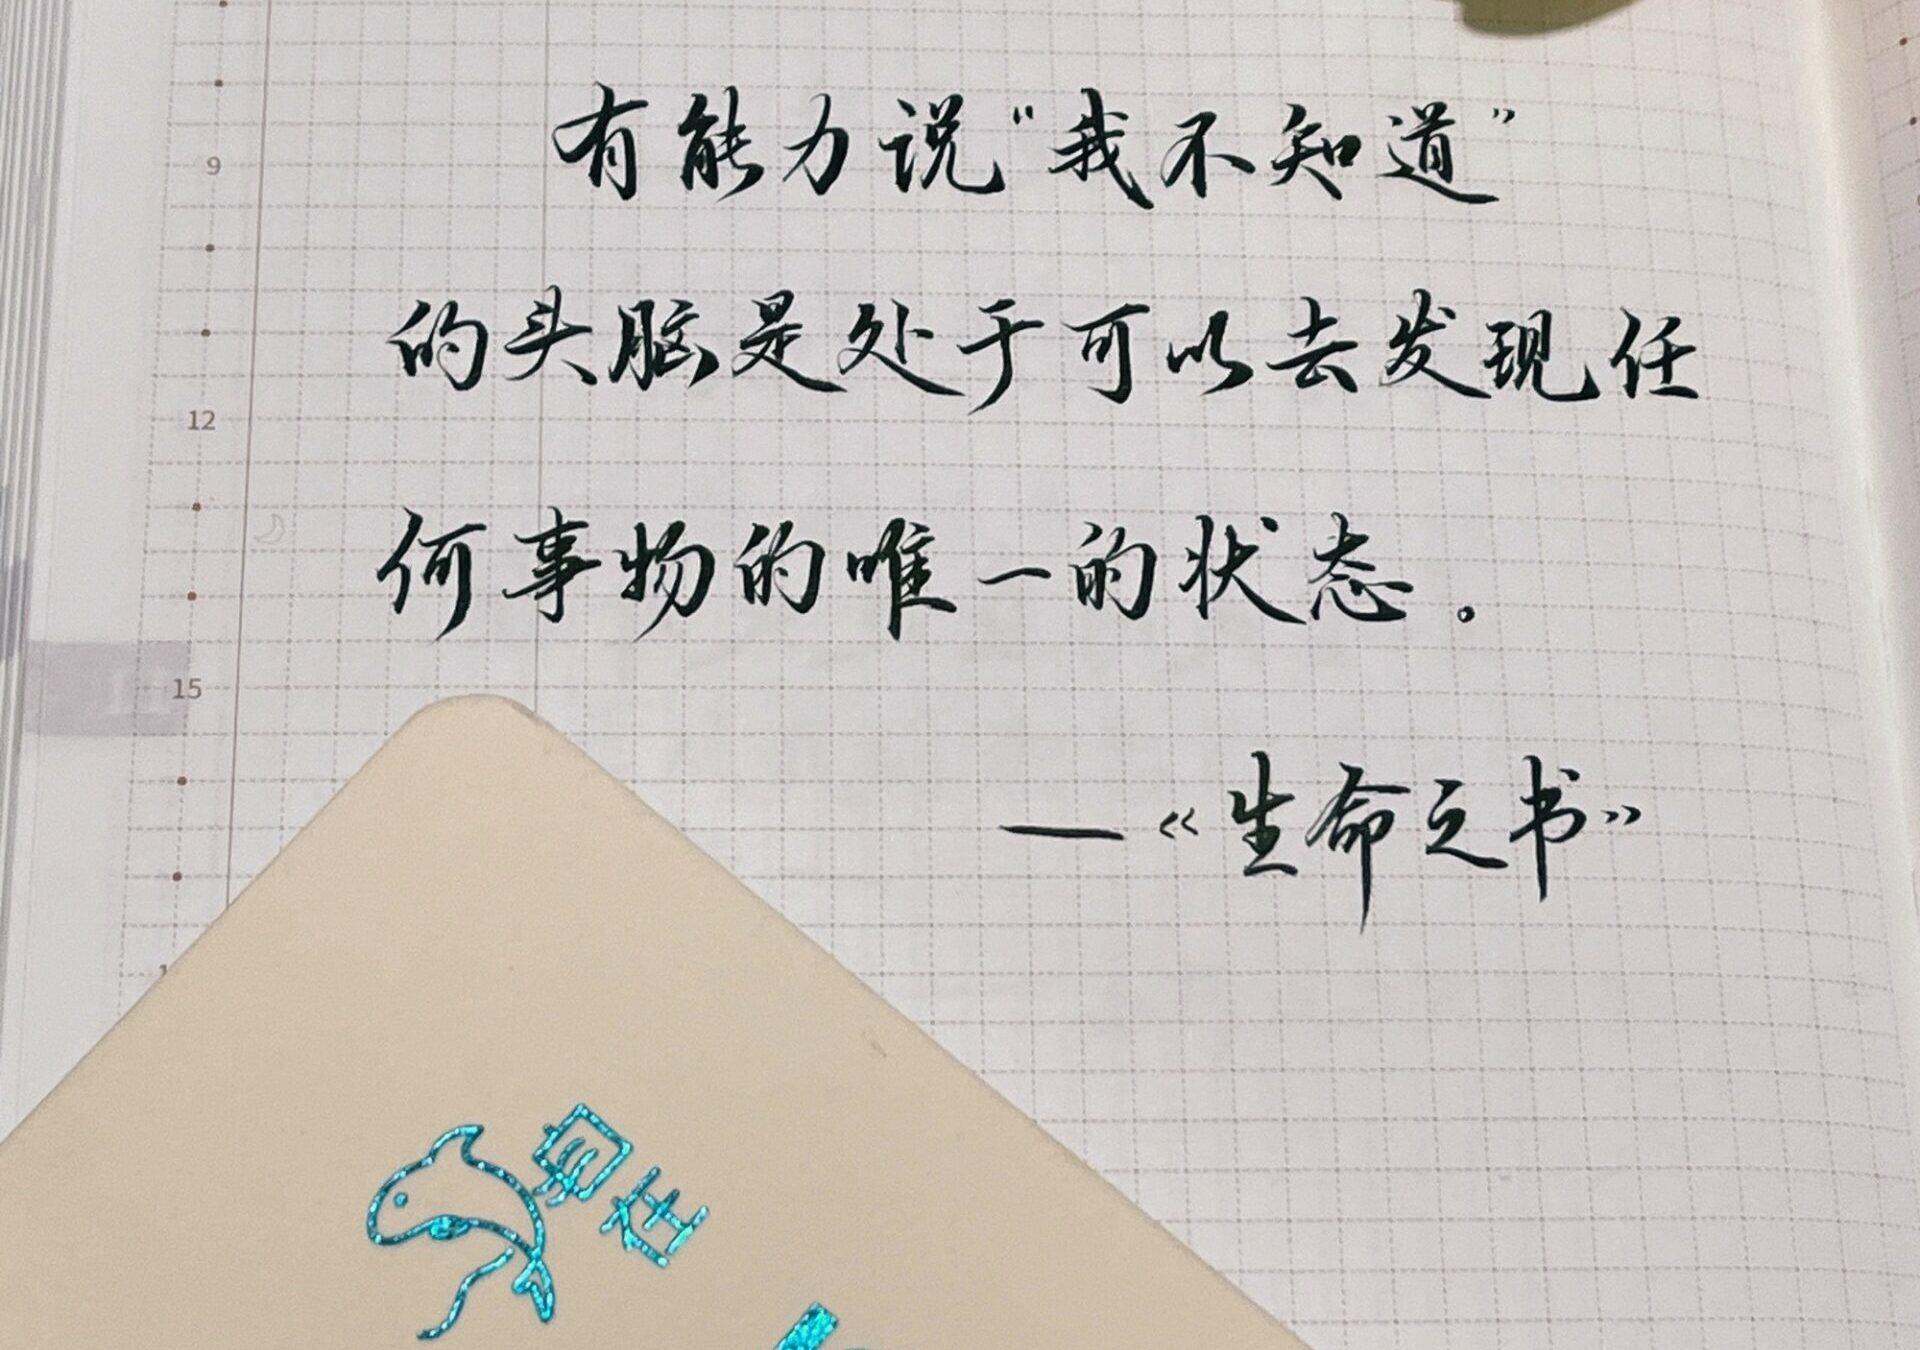 有能力说“我不知道”
的头脑是处于可以去发现任
何事物的唯一的状态。
—《生命之书》
9
12
15
11
自在